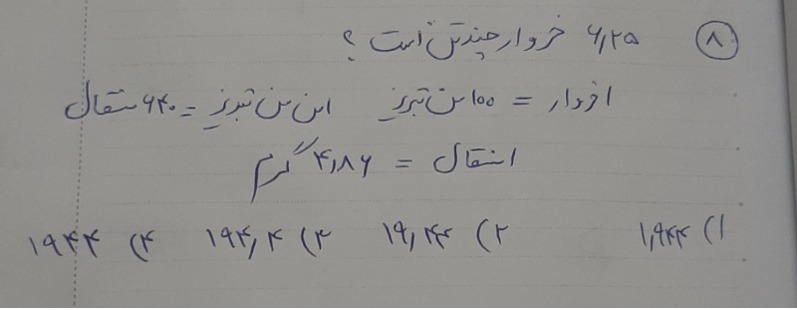 ۸) ۶٫۲۵ خروار چند تن است ؟
۱خروار = ۱۰۰ من تبریز ۱من من تبریز = ۶۴۰ مثقال
۱مثقال = ۴٫۸۶ گرم
۱) ۱٫۹۴۴ ۲) ۱۹٫۴۴ ۳) ۱۹۴٫۴ ۴) ۱۹۴۴